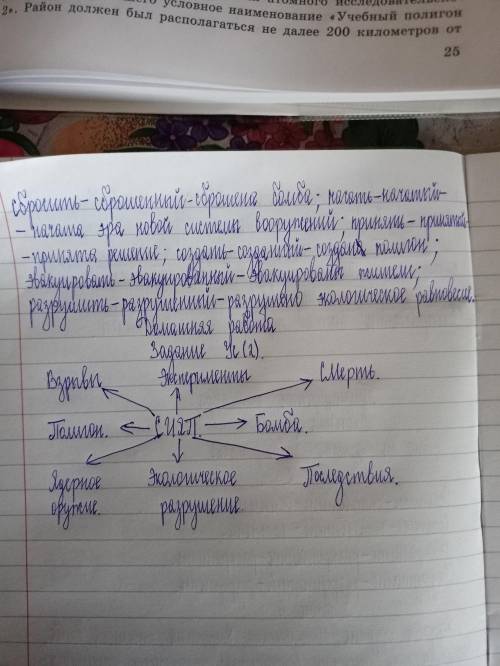 шего условное наименование «Учебный полигон
2». Район должен был располагаться не далее 200 километров от
25
сбросить-сброшенный-сброшена бомба; начать-начатый-
-начата эра новой системы вооружений; принять-принятый-
-принято решение; создать-созданный-создан полигон;
эвакуировать-эвакуированный-эвакуированы жители;
разрушить-разрушенный-разрушено экологическое равновесие.
Домашняя работа
Задание Ус(2).
Взрывы Эксперименты Смерть.
Полигон. СИЯП. Бомба.
Ядерное Экологическое Последствия.
оружие. разрушение